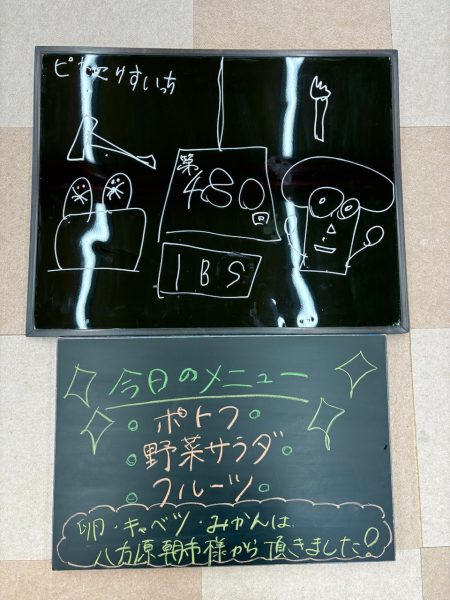 ピタゴリすいっち
第
480
回
IBS
今日のメニュー
ポトフ
野菜サラダ
フルーツ
卵・キャベツ・みかんは
八方原朝市様から頂きました!